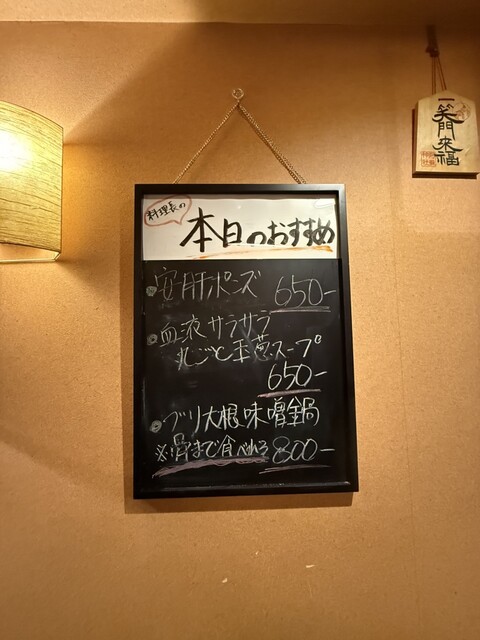 料理長の
本日のおすすめ
安肝ポンズ 650-
血液サラサラ
丸ごと玉葱スープ
650-
ブリ大根味噌鍋
※骨まで食べれる 800-
笑門来福